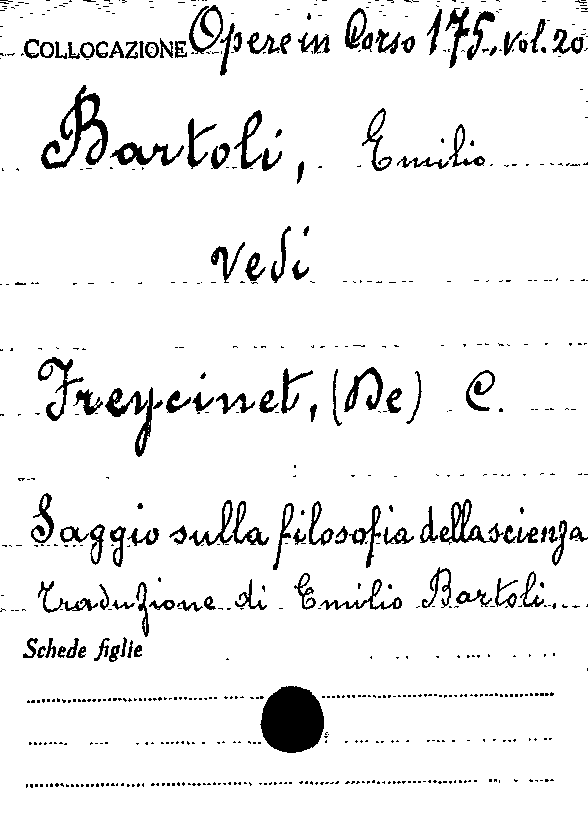 COLLOCAZIONE Opere in Corso 175, vol. 20
Bartoli, Emilio
vedi
Freycinet, (De) C.
Saggio sulla filosofia della scienza
Traduzione di Emilio Bartoli.
Schede figlie